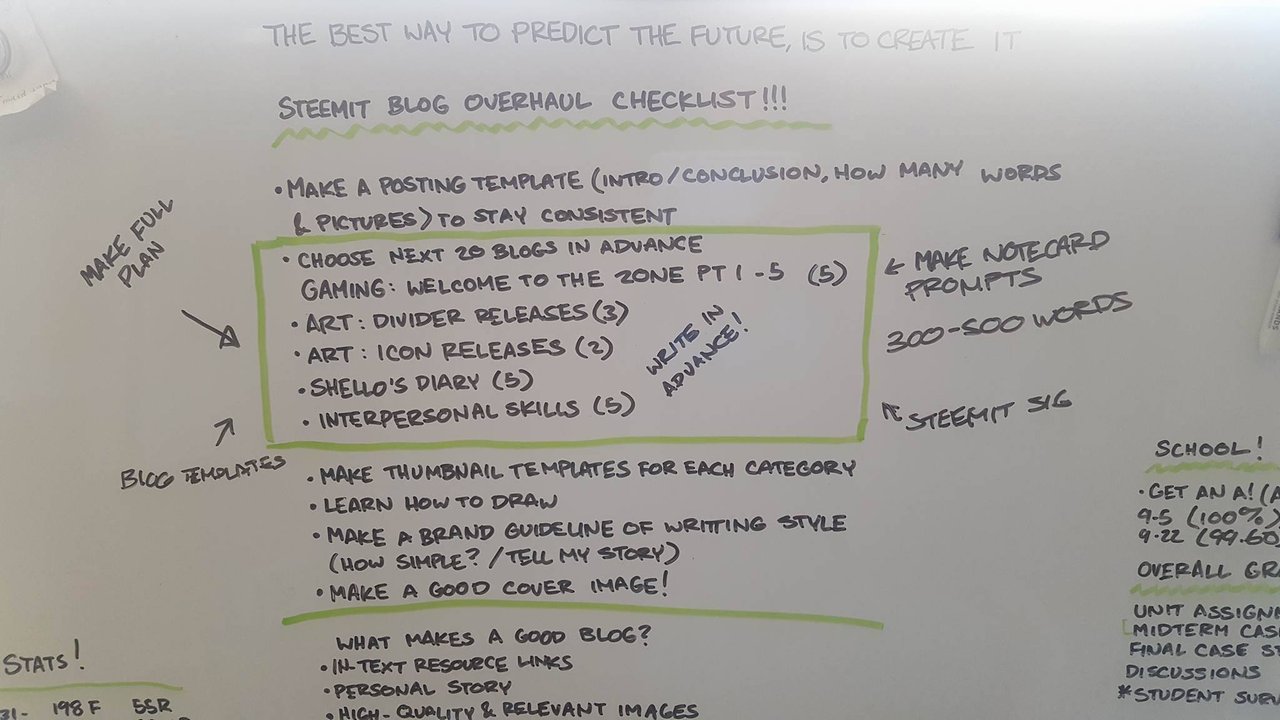 THE BEST WAY TO PREDICT THE FUTURE, IS TO CREATE IT
STEEMIT BLOG OVERHAUL CHECKLIST!!!
• MAKE A POSTING TEMPLATE (INTRO/CONCLUSION, HOW MANY WORDS
& PICTURES) TO STAY CONSISTENT
MAKE FULL
PLAN
• CHOOSE NEXT 20 BLOGS IN ADVANCE
GAMING: WELCOME TO THE ZONE PT 1-5 (5)
• ART: DIVIDER RELEASES (3)
• ART: ICON RELEASES (2)
• SHELLO'S DIARY (5)
• INTERPERSONAL SKILLS (5)
WRITE IN
ADVANCE!
← MAKE NOTECARD
PROMPTS
300-500 WORDS
STEEMIT SIG
BLOG TEMPLATES
• MAKE THUMBNAIL TEMPLATES FOR EACH CATEGORY
• LEARN HOW TO DRAW
• MAKE A BRAND GUIDELINE OF WRITTING STYLE
(HOW SIMPLE? / TELL MY STORY)
• MAKE A GOOD COVER IMAGE!
WHAT MAKES A GOOD BLOG?
• IN-TEXT RESOURCE LINKS
• PERSONAL STORY
• HIGH-QUALITY & RELEVANT IMAGES
STATS!
31- 198 F 5SR
SCHOOL!
• GET AN A! (A
9.5 (100%)
9.22 (99.60
OVERALL GRA
UNIT ASSIGN
MIDTERM CAS
FINAL CASE ST
DISCUSSIONS
*STUDENT SURV